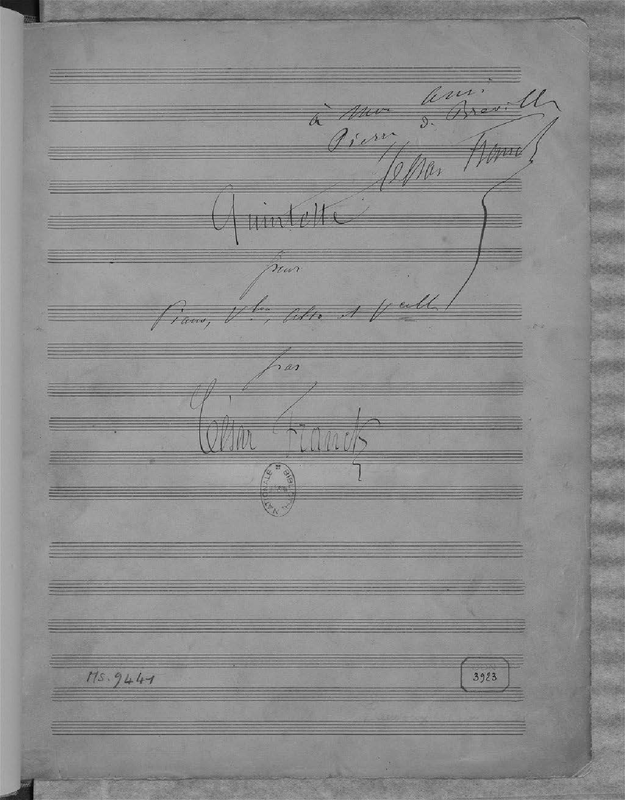 à mon ami
Pierre de Bréville
César Franck
Quintette
pour
Piano, Vons, Alto et Vcelle
par
César Franck
BIBLIOTH. NATIONALE
Ms. 9441
3923